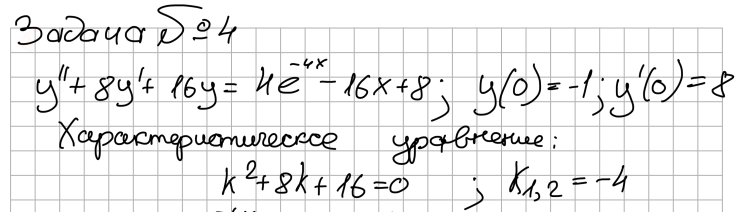 Задача №4
y'' + 8y' + 16y = 4e^{-4x} - 16x + 8; y(0) = -1; y'(0) = 8
Характеристическое уравнение:
k² + 8k + 16 = 0 ; k_{1,2} = -4